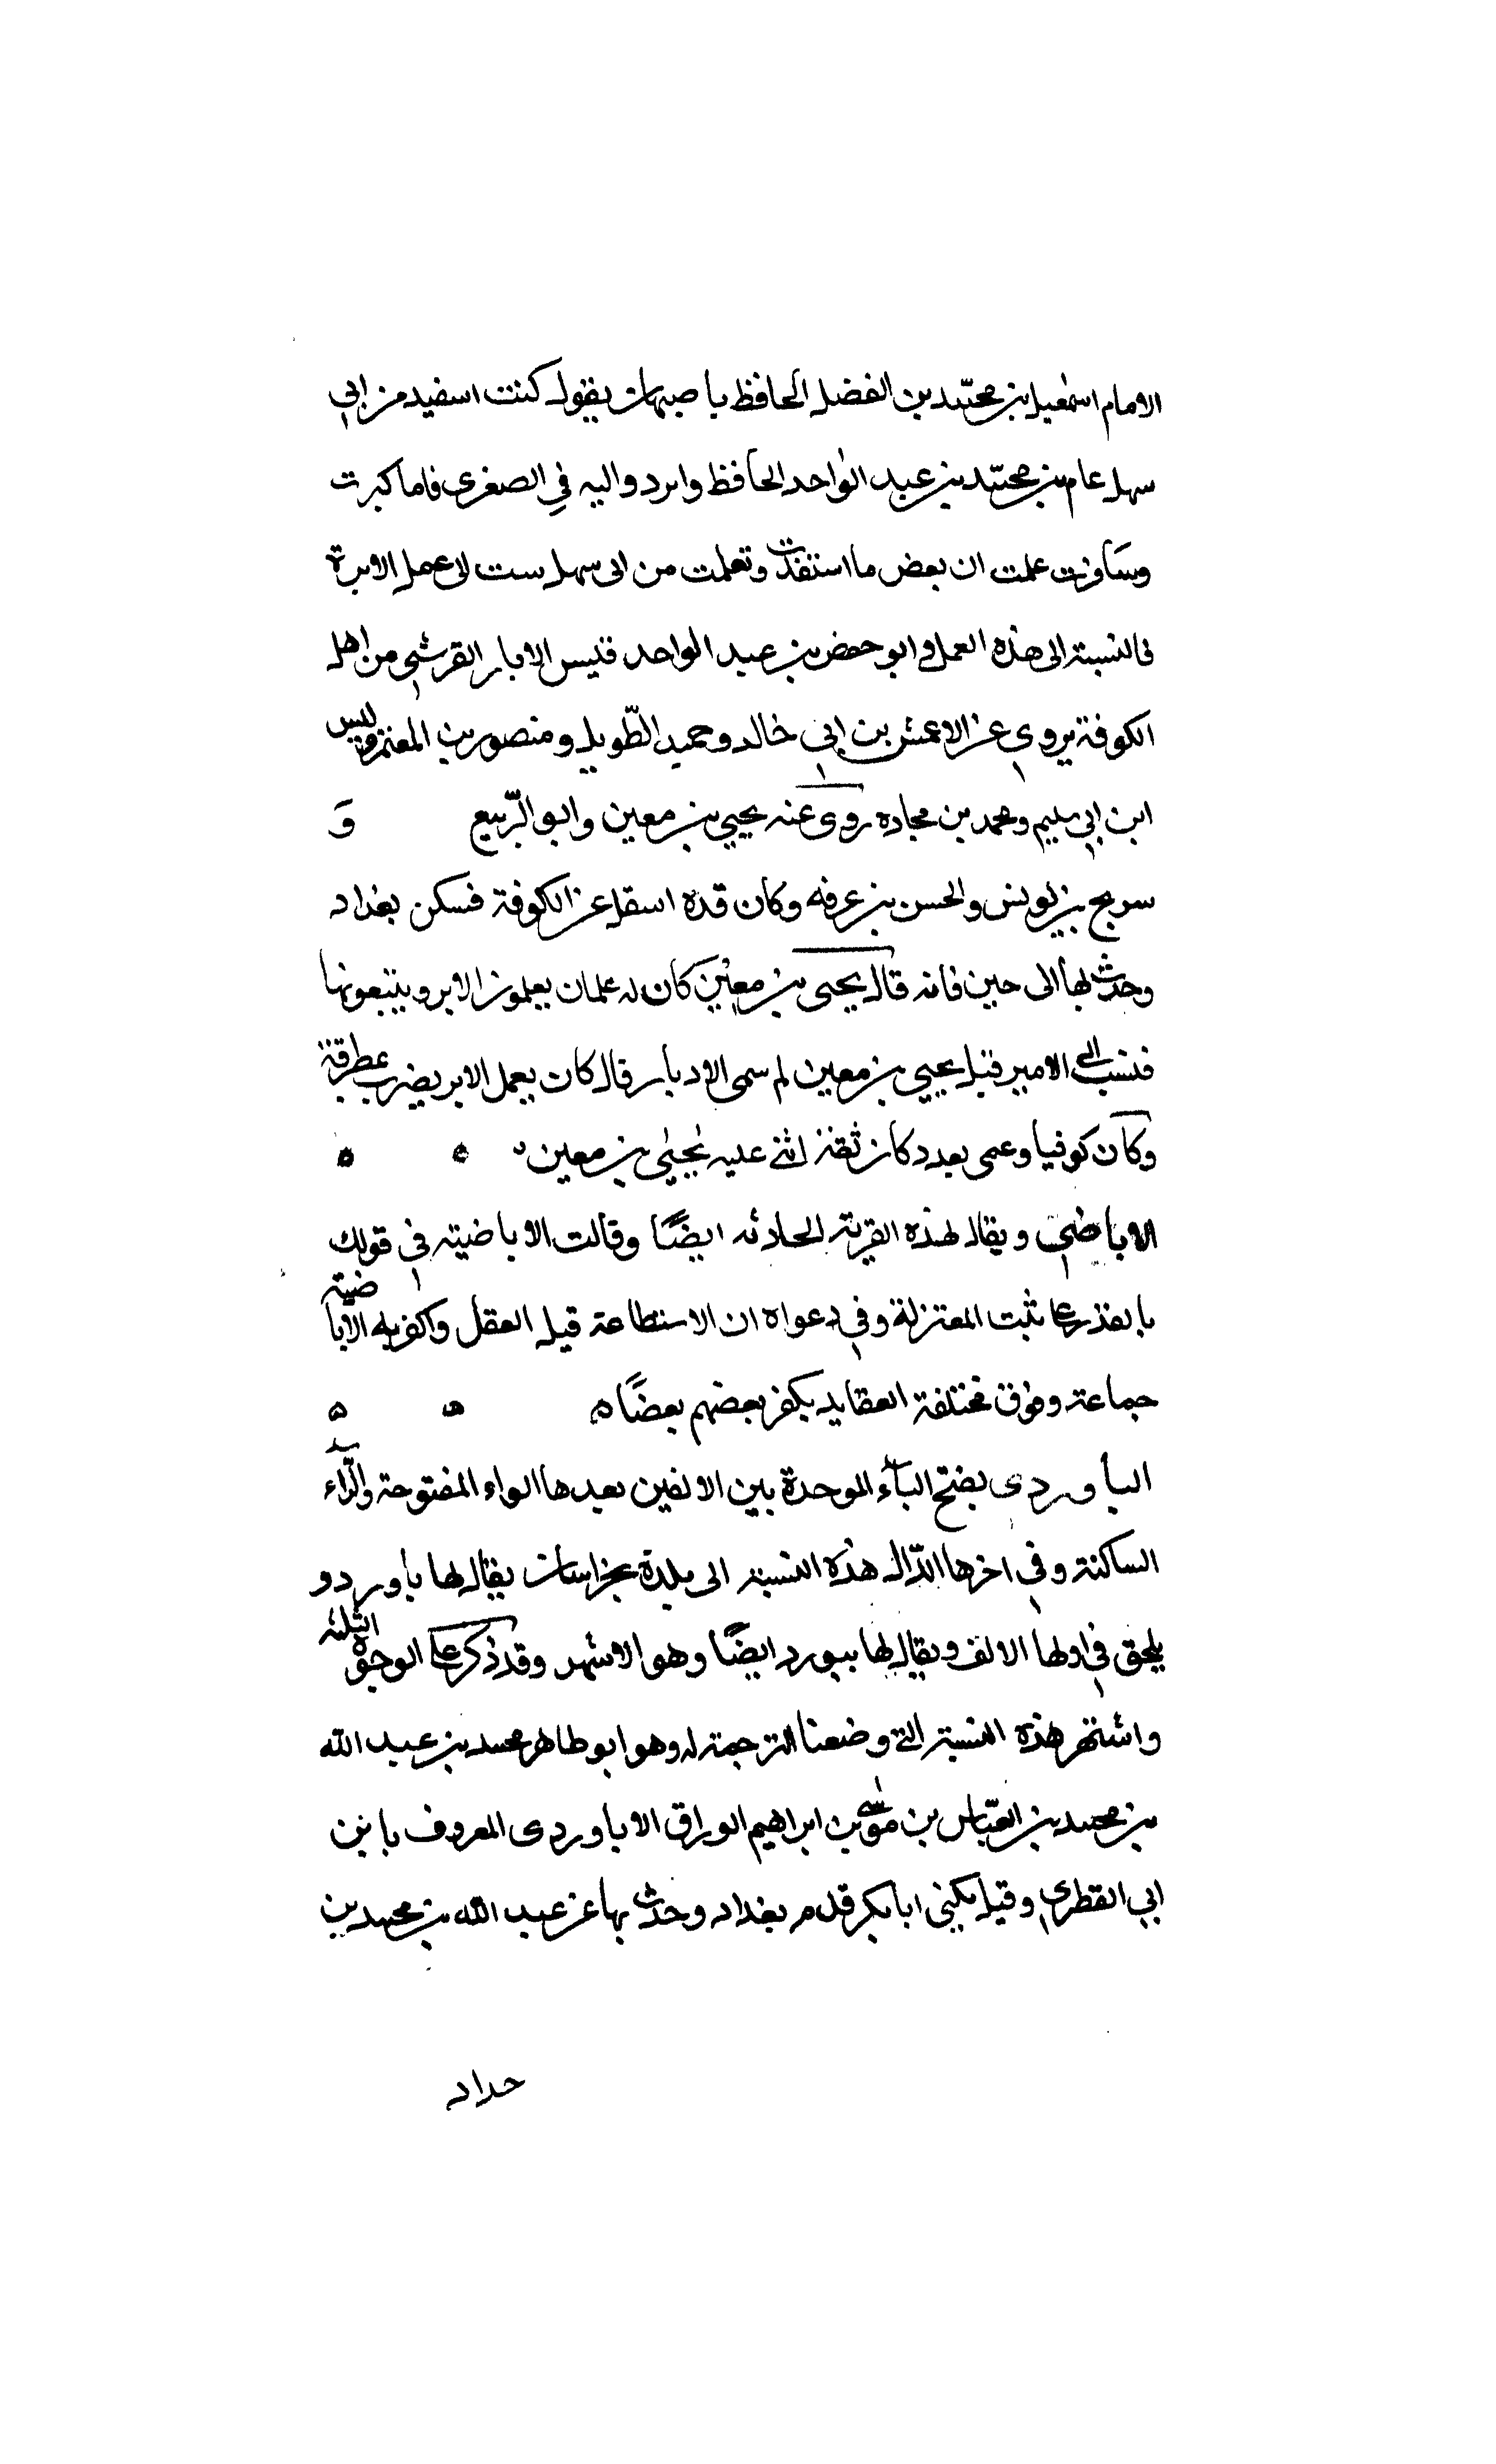 الامام اسمعيل بن محمد بن الفضل الحافظ باصبهان يقول كنت اسفيد من ابي
سهل عام بن محمد بن عبد الواحد الحافظ واردو اليه في الصغرى فاما كبرت
وسافرت علمت ان بعض ما استفدت وتعلمت من ابى سهل ست لى عمل الابرة
فالنسبة الى هذه العمل وابو حفص بن عبد الواحد قيس الابار القرشي من اهل
الكوفة يروي عن الاعمش بن ابي خالد وحميد الطّويل ومنصور بن المعتمر وليس
ابن ابي سليم ومحمد بن مجاده روى عنه يحيي بن معين وابو الرّبيع و
سريج بن يونس والحسن بن عرفه وكان قده اسقل عن الكوفة فسكن بغداد
وحدث بها الى حين فانه قال يحيى بن معين كان له علمان يعلمون الابر ويتبعونها
فنسب الى الامير قيل يحيي بن معين لم سمى الادبار قال كان يعمل الابر يضرب بمطرقة
وكان كوفيا وعمى بعدد كان ثقة اثنى عليه يحيٰي بن معين ه ه ه
الاباضي ويقال لهذه القرية الحلاثه ايضًا وقالت الاباضية في قولك
بالقدر على ثبت المعتزلة وفي دعواه ان الاستطاعة قيل العقل واكفر به الاباضية
جماعة وفرق مختلفة العقايد يكفر بعضهم بعضًا ه ه ه
الباوردى بفتح الباء الموحدة بين الالفين بعدها الواء المفتوحة والرّاء
الساكنة وفي اخرها الدّال هذه النسبة الى بلدة بخراسان يقال لها باورد و
يلحق في اولها الالف ويقال لها بيورد ايضًا وهو الاشهر وقد ذكر على الوجوه الثلثه
واشتهر هذه النسبة التي وضعنا الترجمة له وهو ابو طاهر محمد بن عبد الله
بن محمد بن العبّاس بن موسى بن ابراهيم الوراق الاباوردى المعروف بابن
ابي القطري وقيل يكنى ابا بكر قدم بغداد وحدث بها عن عبد الله بن محمد بن
حداد